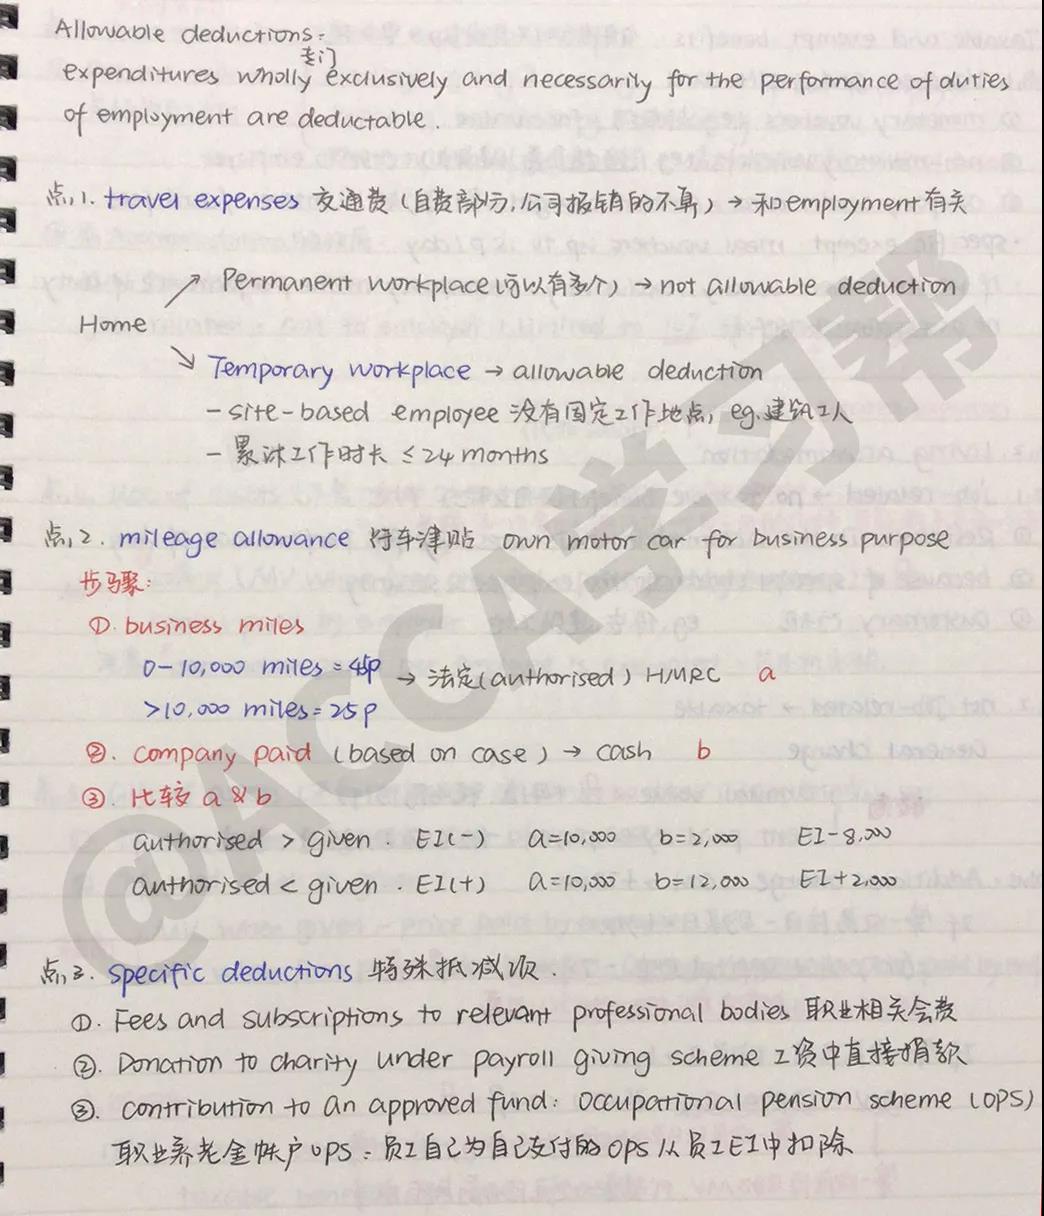 Allowable deductions:
专门
expenditures wholly exclusively and necessarily for the performance of duties
of employment are deductable.
点1. travel expenses 交通费(自费部分,公司报销的不算) → 和employment有关
↗ Permanent workplace(可以有多个) → not allowable deduction
Home
↘ Temporary workplace → allowable deduction
- site-based employee 没有固定工作地点, eg.建筑工人
- 累计工作时长 ≤24 months
点2. mileage allowance 行车津贴 own motor car for business purpose
步骤:
①. business miles
0-10,000 miles = 45p → 法定(authorised) HMRC a
>10,000 miles = 25p
②. company paid (based on case) → cash b
③. 比较 a & b
authorised > given . EI(-) a=10,000 b=2,000 EI-8,000
authorised < given . EI(+) a=10,000 b=12,000 EI+2,000
点3. specific deductions 特殊抵减项.
①. Fees and subscriptions to relevant professional bodies 职业相关会费
②. Donation to charity under payroll giving scheme 工资中直接捐款
③. contribution to an approved fund: occupational pension scheme (OPS)
职业养老金帐户OPS: 员工自己为自己支付的OPS从员工EI中扣除
@ACCA学习帮